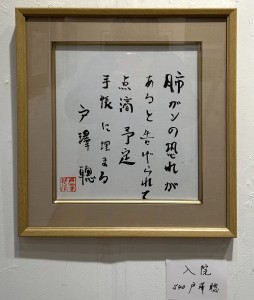 肺ガンの恐れが
あると告げられて
点滴予定
手帳に埋まる
戸澤聰
入院
戸澤聰